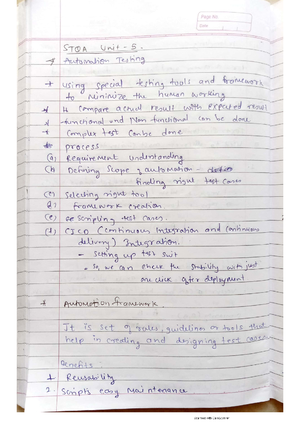 Page No.
Date
STQA Unit - 5.
Automation Testing
using special testing tools and framework
to minimize the human working
It compare actual result with expected result
functional and Non functional can be done
Complex test can be done
process
(a) Requirement understanding
(b) Defining Scope of automation
finding right test cases
(c) Selecting right tool
framework creation
(e) Scripting test cases.
(f) CICD (Continuous Integration and Continuous
delivery) Integration.
- Setting up test suit
- In we can check the Stability with just
one click after deployment
Automation framework
It is set of rules, guidelines or tools that
help in creating and designing test cases
Benefits
1. Reusability
2. Scripts easy maintenance